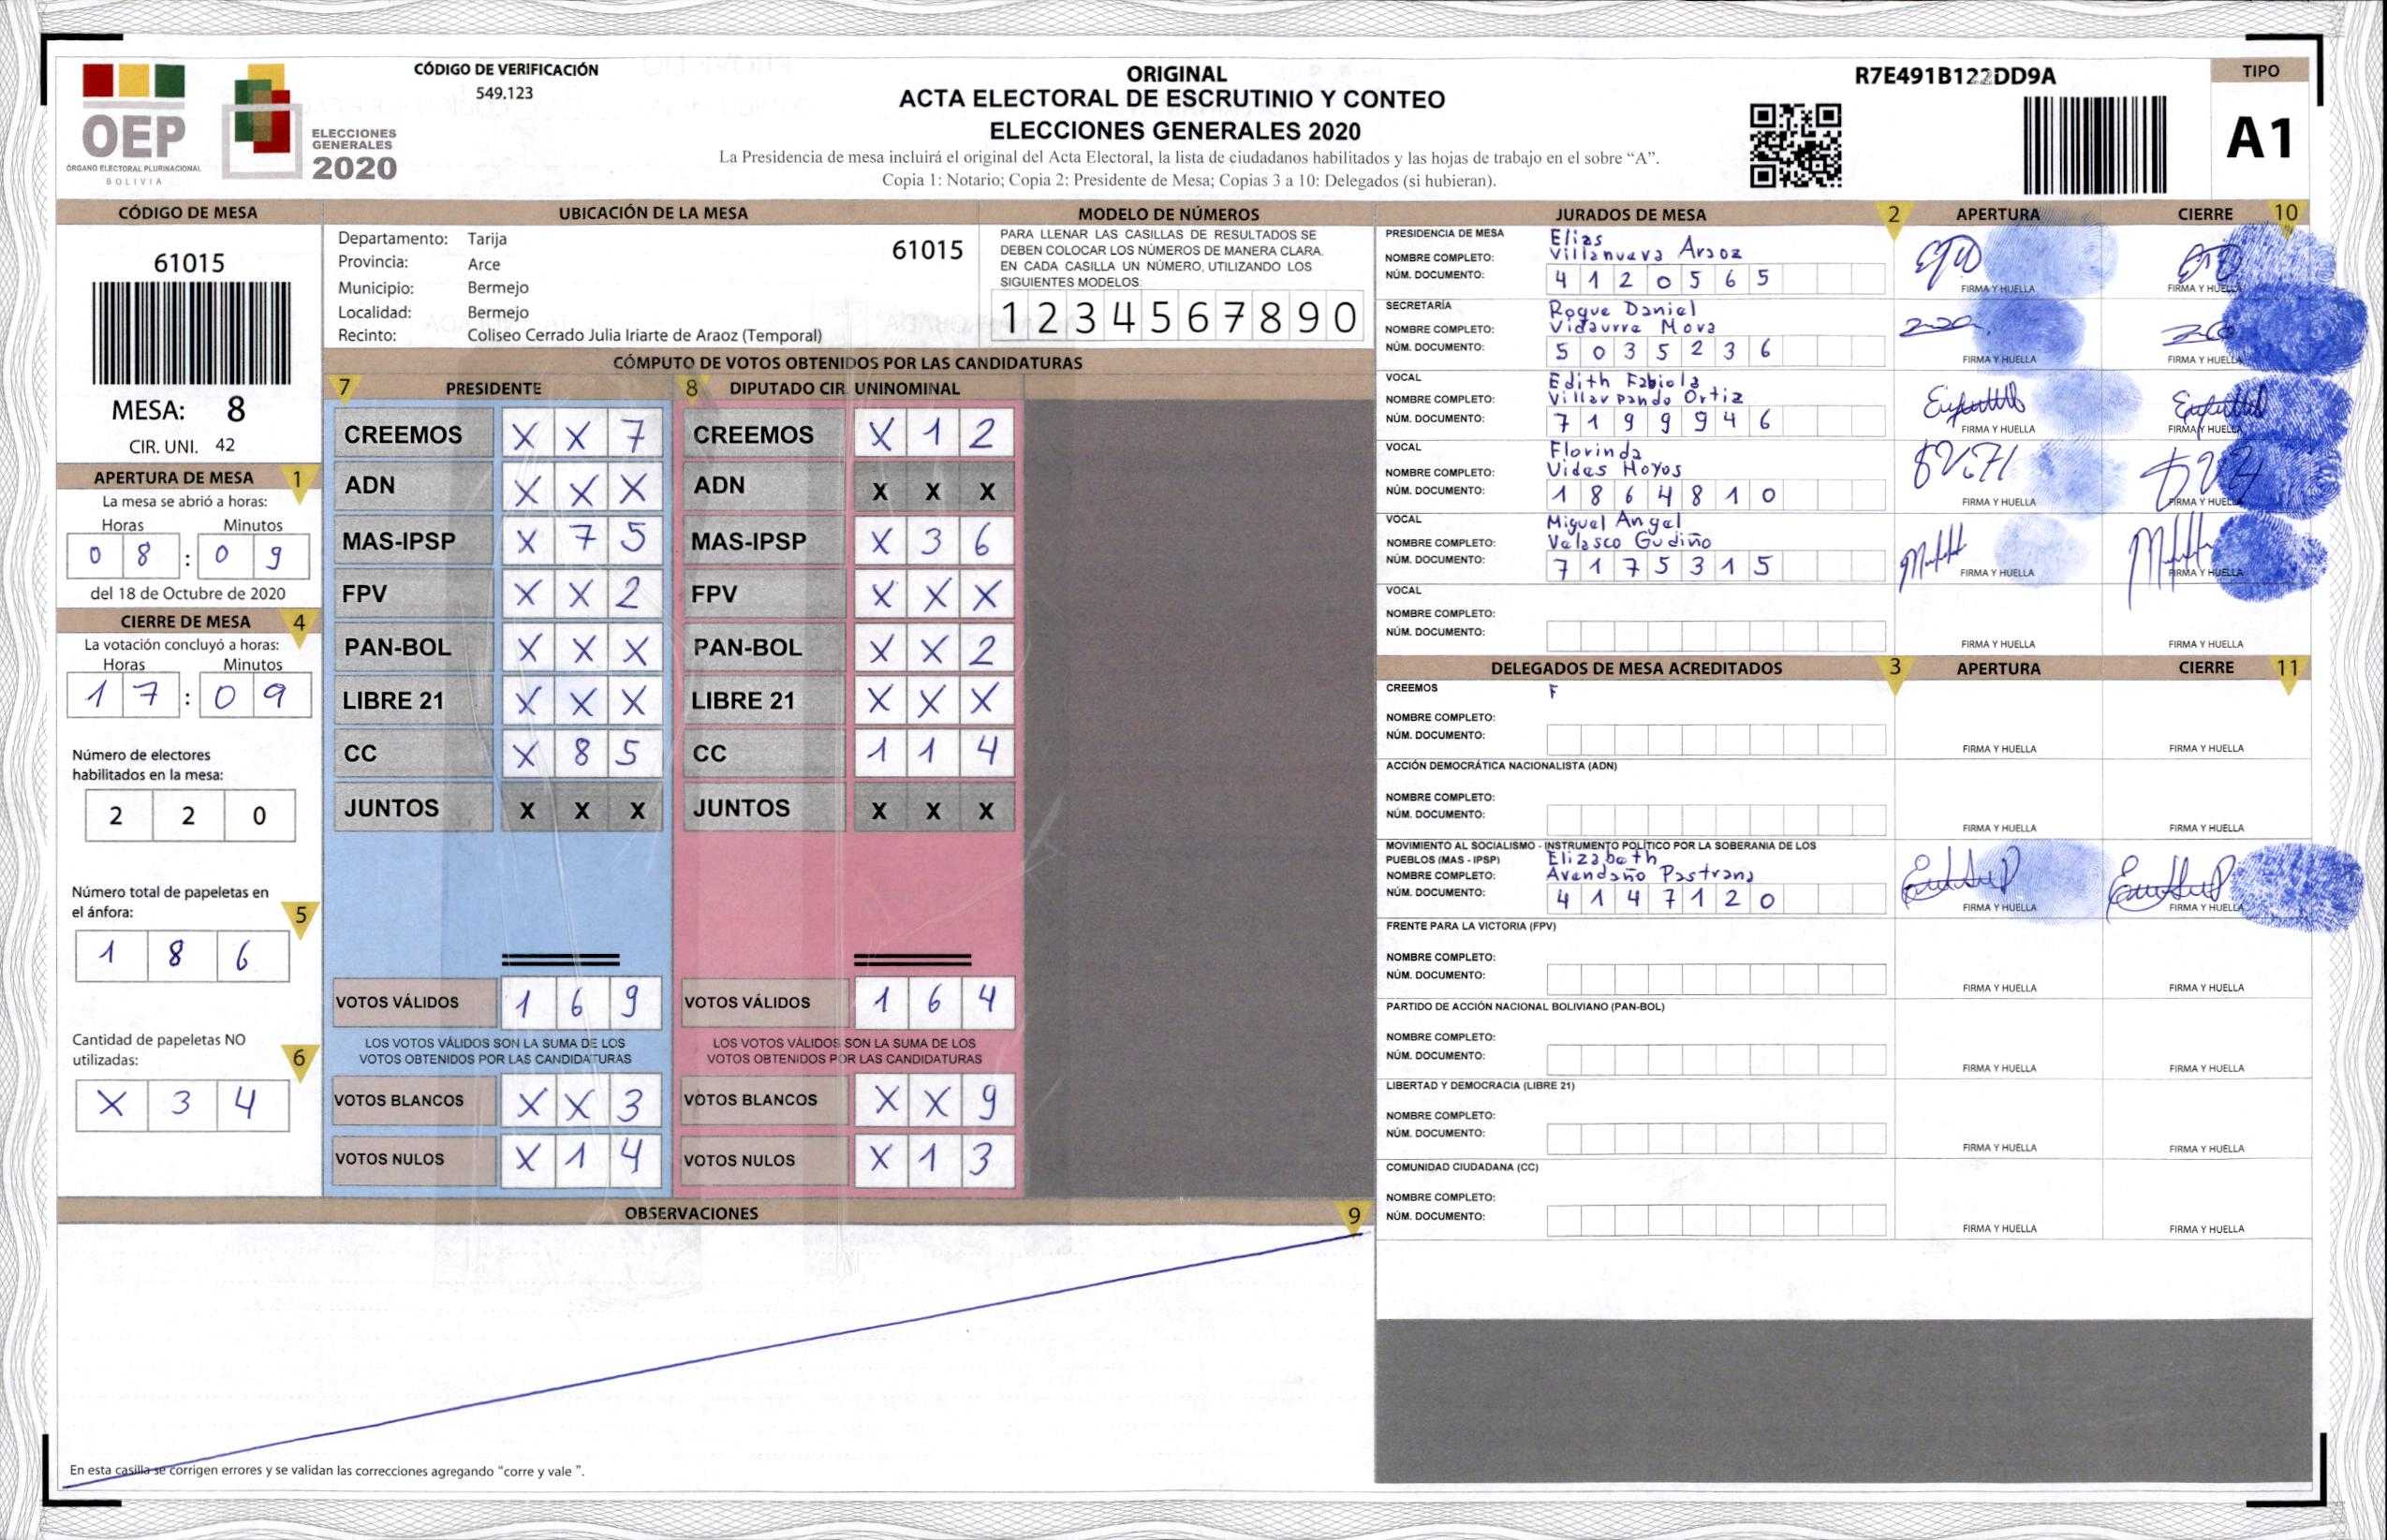 OEP
ÓRGANO ELECTORAL PLURINACIONAL
BOLIVIA
ELECCIONES
GENERALES
2020
CÓDIGO DE VERIFICACIÓN
549.123
ORIGINAL
ACTA ELECTORAL DE ESCRUTINIO Y CONTEO
ELECCIONES GENERALES 2020
La Presidencia de mesa incluirá el original del Acta Electoral, la lista de ciudadanos habilitados y las hojas de trabajo en el sobre “A”.
Copia 1: Notario; Copia 2: Presidente de Mesa; Copias 3 a 10: Delegados (si hubieran).
R7E491B122DD9A
TIPO
A1
CÓDIGO DE MESA
61015
MESA: 8
CIR. UNI. 42
APERTURA DE MESA 1
La mesa se abrió a horas:
Horas Minutos
0 8 : 0 9
del 18 de Octubre de 2020
CIERRE DE MESA 4
La votación concluyó a horas:
Horas Minutos
1 7 : 0 9
Número de electores
habilitados en la mesa:
2 2 0
Número total de papeletas en
el ánfora: 5
1 8 6
Cantidad de papeletas NO
utilizadas: 6
X 3 4
UBICACIÓN DE LA MESA
Departamento: Tarija
61015
Provincia: Arce
Municipio: Bermejo
Localidad: Bermejo
Recinto: Coliseo Cerrado Julia Iriarte de Araoz (Temporal)
MODELO DE NÚMEROS
PARA LLENAR LAS CASILLAS DE RESULTADOS SE
DEBEN COLOCAR LOS NÚMEROS DE MANERA CLARA.
EN CADA CASILLA UN NÚMERO, UTILIZANDO LOS
SIGUIENTES MODELOS:
1 2 3 4 5 6 7 8 9 0
CÓMPUTO DE VOTOS OBTENIDOS POR LAS CANDIDATURAS
7 PRESIDENTE 8 DIPUTADO CIR. UNINOMINAL
CREEMOS X X 7 CREEMOS X 1 2
ADN X X X ADN X X X
MAS-IPSP X 7 5 MAS-IPSP X 3 6
FPV X X 2 FPV X X X
PAN-BOL X X X PAN-BOL X X 2
LIBRE 21 X X X LIBRE 21 X X X
CC X 8 5 CC 1 1 4
JUNTOS X X X JUNTOS X X X
VOTOS VÁLIDOS 1 6 9 VOTOS VÁLIDOS 1 6 4
LOS VOTOS VÁLIDOS SON LA SUMA DE LOS LOS VOTOS VÁLIDOS SON LA SUMA DE LOS
VOTOS OBTENIDOS POR LAS CANDIDATURAS VOTOS OBTENIDOS POR LAS CANDIDATURAS
VOTOS BLANCOS X X 3 VOTOS BLANCOS X X 9
VOTOS NULOS X 1 4 VOTOS NULOS X 1 3
OBSERVACIONES 9
En esta casilla se corrigen errores y se validan las correcciones agregando “corre y vale ”.
JURADOS DE MESA 2 APERTURA CIERRE 10
PRESIDENCIA DE MESA Elias
NOMBRE COMPLETO: Villanueva Araoz
NÚM. DOCUMENTO: 4 1 2 0 5 6 5
FIRMA Y HUELLA FIRMA Y HUELLA
SECRETARÍA Roque Daniel
NOMBRE COMPLETO: Vidaurre Mova
NÚM. DOCUMENTO: 5 0 3 5 2 3 6
FIRMA Y HUELLA FIRMA Y HUELLA
VOCAL Edith Fabiola
NOMBRE COMPLETO: Villar pando Ortiz
NÚM. DOCUMENTO: 7 1 9 9 9 4 6
FIRMA Y HUELLA FIRMA Y HUELLA
VOCAL Florinda
NOMBRE COMPLETO: Vides Hoyos
NÚM. DOCUMENTO: 1 8 6 4 8 1 0
FIRMA Y HUELLA FIRMA Y HUELLA
VOCAL Miguel Angel
NOMBRE COMPLETO: Velasco Gudiño
NÚM. DOCUMENTO: 7 1 7 5 3 1 5
FIRMA Y HUELLA FIRMA Y HUELLA
VOCAL
NOMBRE COMPLETO:
NÚM. DOCUMENTO:
FIRMA Y HUELLA FIRMA Y HUELLA
DELEGADOS DE MESA ACREDITADOS 3 APERTURA CIERRE 11
CREEMOS F
NOMBRE COMPLETO:
NÚM. DOCUMENTO:
FIRMA Y HUELLA FIRMA Y HUELLA
ACCIÓN DEMOCRÁTICA NACIONALISTA (ADN)
NOMBRE COMPLETO:
NÚM. DOCUMENTO:
FIRMA Y HUELLA FIRMA Y HUELLA
MOVIMIENTO AL SOCIALISMO - INSTRUMENTO POLÍTICO POR LA SOBERANIA DE LOS
PUEBLOS (MAS - IPSP) Elizabeth
NOMBRE COMPLETO: Avendaño Pastrana
NÚM. DOCUMENTO: 4 1 4 7 1 2 0
FIRMA Y HUELLA FIRMA Y HUELLA
FRENTE PARA LA VICTORIA (FPV)
NOMBRE COMPLETO:
NÚM. DOCUMENTO:
FIRMA Y HUELLA FIRMA Y HUELLA
PARTIDO DE ACCIÓN NACIONAL BOLIVIANO (PAN-BOL)
NOMBRE COMPLETO:
NÚM. DOCUMENTO:
FIRMA Y HUELLA FIRMA Y HUELLA
LIBERTAD Y DEMOCRACIA (LIBRE 21)
NOMBRE COMPLETO:
NÚM. DOCUMENTO:
FIRMA Y HUELLA FIRMA Y HUELLA
COMUNIDAD CIUDADANA (CC)
NOMBRE COMPLETO:
NÚM. DOCUMENTO:
FIRMA Y HUELLA FIRMA Y HUELLA